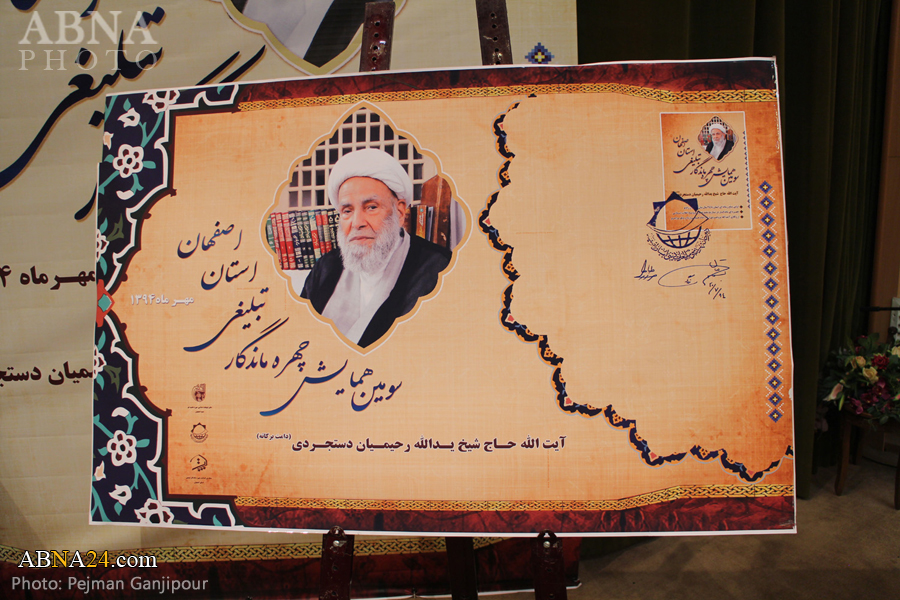 ABNA
PHOTO
تبلیغی
مهر ماه ۴
میان دستج
استان اصفهان
تبلیغی
سومین همایش چهره ماندگار
مهر ماه ۱۳۹۴
آیت الله حاج شیخ یدالله رحیمیان دستجردی (دامت برکاته)
استان اصفهان
سومین همایش چهره ماندگار تبلیغی
آیت الله حاج شیخ یدالله رحیمیان دستجردی
ABNA24.com
Photo: Pejman Ganjipour